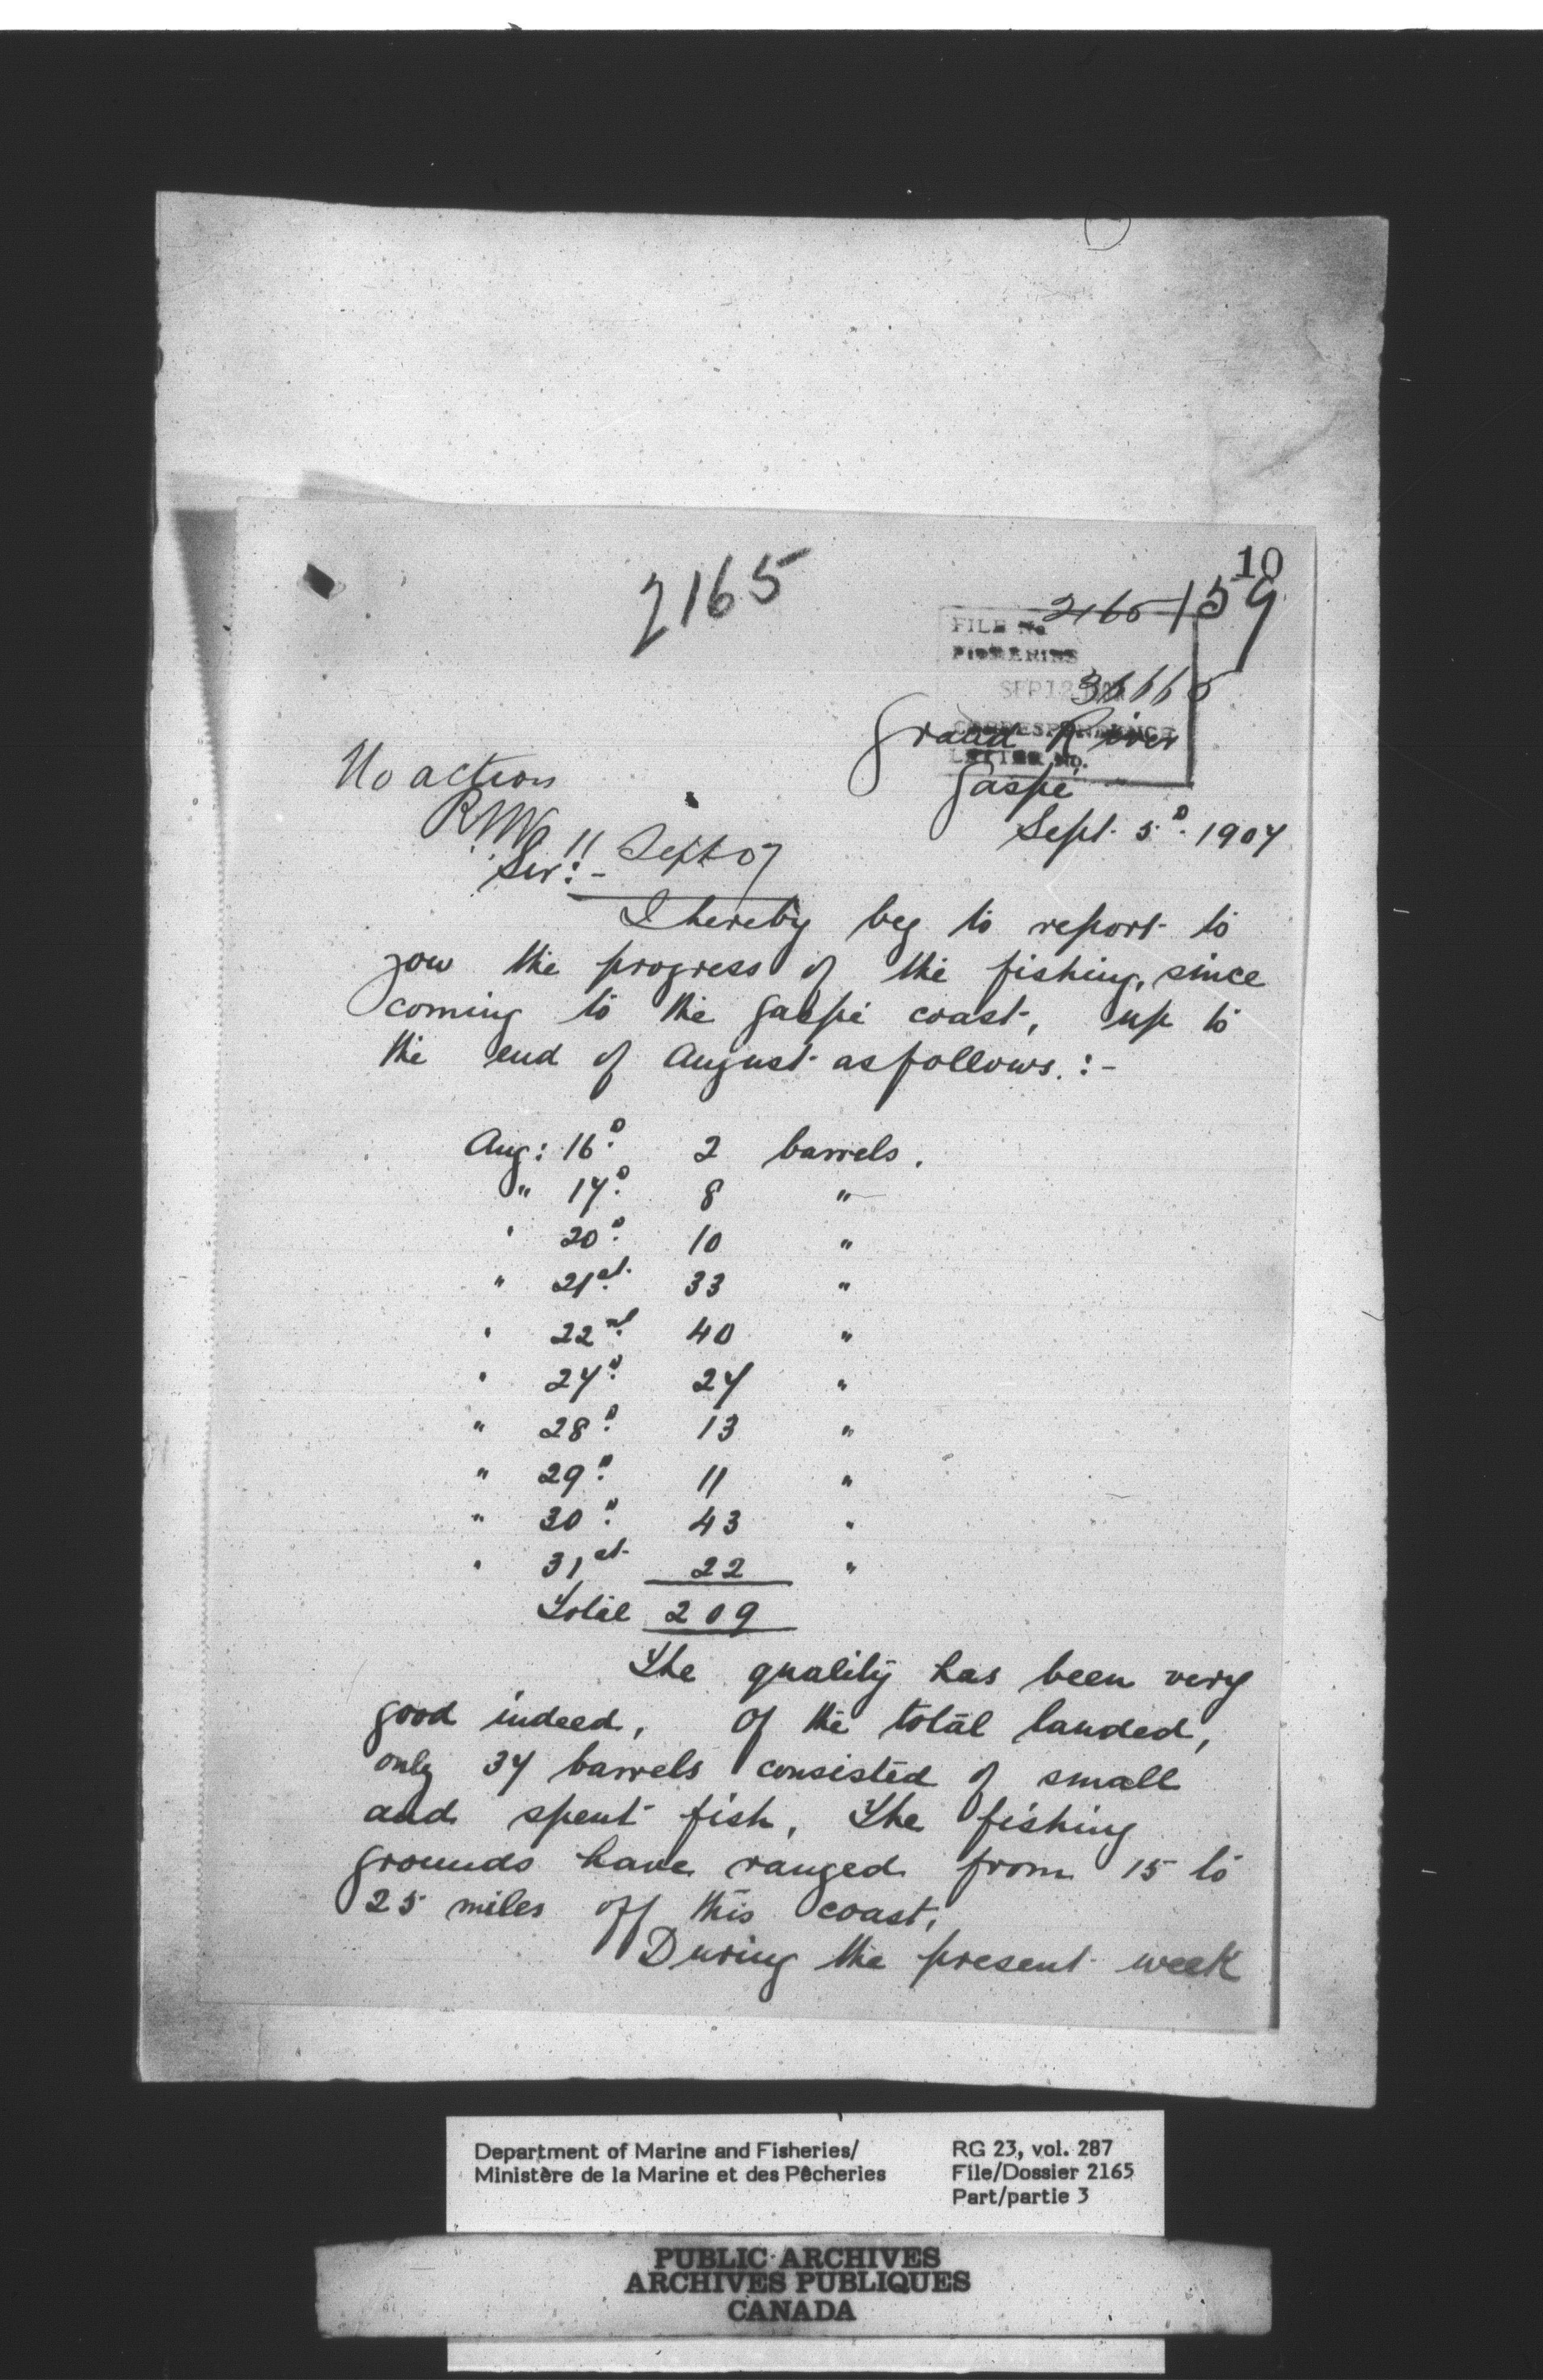 10
2165
FILE No 2165 159
FISHERIES
SEP 12
CORRESPONDENCE
LETTER No.
Grand River
Gaspé
Sept. 5º. 1907
No action
Sept 07
Sir:-
I hereby beg to report to
you the progress of the fishing, since
coming to the Gaspé coast, up to
the end of August as follows.:-
Aug: 16º 2 barrels.
" 17º 8 "
" 20º 10 "
" 21st 33 "
" 22nd 40 "
" 27º 27 "
" 28º 13 "
" 29º 11 "
" 30º 43 "
" 31st 22 "
Total 209
The quality has been very
good indeed, Of the total landed,
only 37 barrels consisted of small
and spent fish. The fishing
grounds have ranged from 15 to
25 miles off this coast.
During the present week
Department of Marine and Fisheries/
Ministère de la Marine et des Pêcheries
RG 23, vol. 287
File/Dossier 2165
Part/partie 3
PUBLIC ARCHIVES
ARCHIVES PUBLIQUES
CANADA